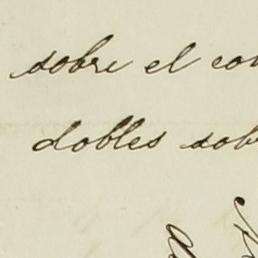 sobre el con
dobles sob